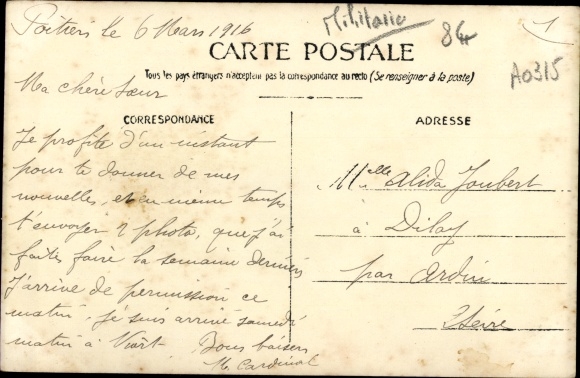 Poitiers le 6 Mars 1916
Militaria
84
1
A0315
CARTE POSTALE
Tous les pays étrangers n'acceptent pas la correspondance au recto (Se renseigner à la poste)
Ma chère Sœur
CORRESPONDANCE
Je profite d'un instant
pour te donner de mes
nouvelles, et en même temps
t'envoyer 2 photo, que j'ai
faites faire la semaine dernière
J'arrive de permission ce
matin, je suis arrivé samedi
matin à Niort. Bons baisers
M. Cardinal
ADRESSE
Melle Alida Joubert
à Dilay
par Ardin